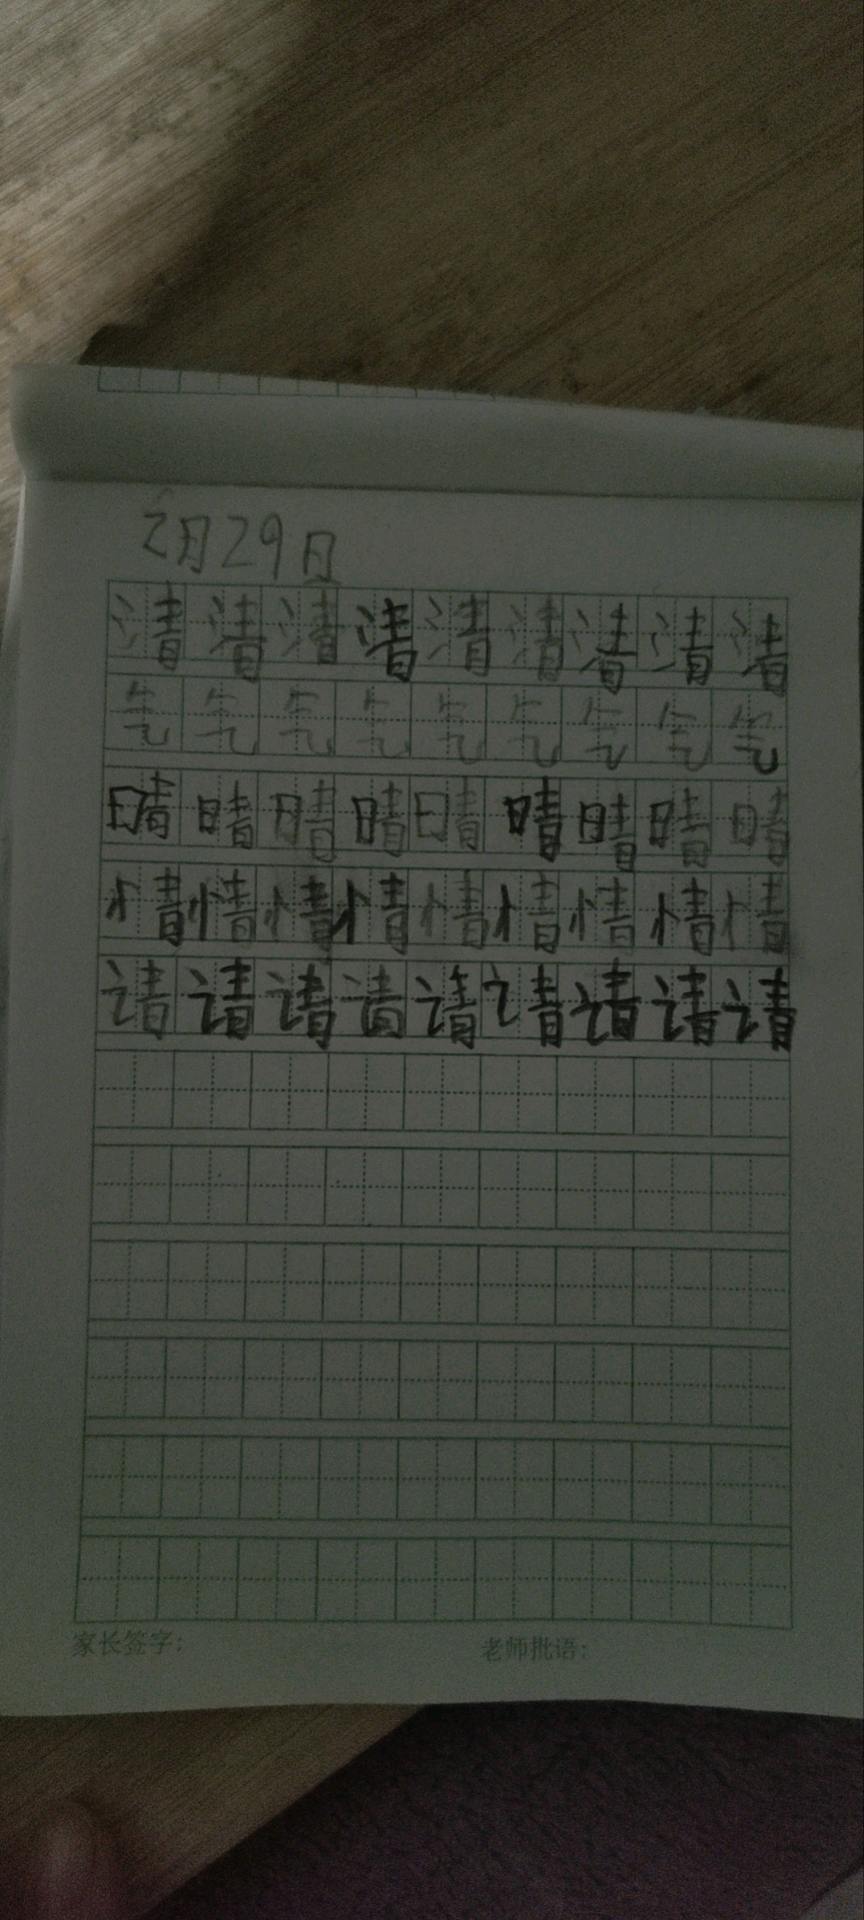 2月29日
清清清清清清清清清
气气气气气气气气气
晴晴晴晴晴晴晴晴晴
情情情情情情情情情
请请请请请请请请请
家长签字： 老师批语：